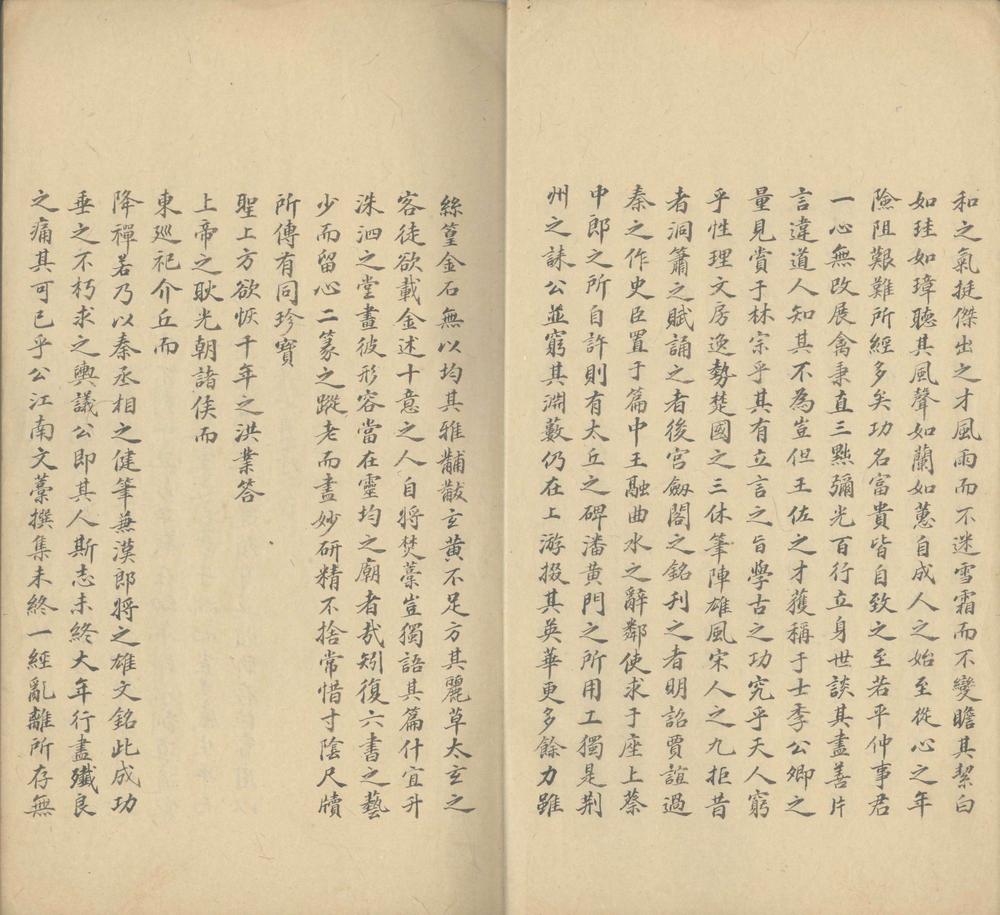 和之氣挺傑出之才風雨而不迷雪霜而不變瞻其絜白
如珪如璋聽其風聲如蘭如蕙自成人之始至從心之年
險阻艱難所經多矣功名富貴皆自致之至若平仲事君
一心無改展禽秉直三黜彌光百行立身世談其盡善片
言違道人知其不為豈但王佐之才獲稱于士季公卿之
量見賞于林宗乎其有立言之旨學古之功究乎天人窮
乎性理文房逸勢楚國之三休筆陣雄風宋人之九拒昔
者洞簫之賦誦之者後宮劔閣之銘刋之者明詔賈誼過
秦之作史臣置于篇中王融曲水之辭鄰使求于座上蔡
中郎之所自許則有太丘之碑潘黄門之所用工獨是荆
州之誄公並窮其淵藪仍在上游掇其英華更多餘力雖
絲篁金石無以均其雅黼黻玄黄不足方其麗草太玄之
客徒欲載金述十意之人自將焚藁豈獨語其篇什宜升
洙泗之堂畫彼形容當在靈均之廟者哉矧復六書之藝
少而留心二篆之蹤老而盡妙研精不捨常惜寸陰尺牘
所傳有同珍寶
聖上方欲恢千年之洪業答
上帝之耿光朝諸侯而
東廵祀介丘而
降禪若乃以秦丞相之健筆兼漢郎將之雄文銘此成功
垂之不朽求之輿議公即其人斯志未終大年行盡殲良
之痛其可已乎公江南文藁撰集未終一經亂離所存無